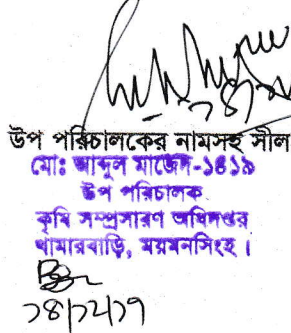 উপ পরিচালকের নামসহ সীল
মোঃ আব্দুল মাজেদ-১৪১৯
উপ পরিচালক
কৃষি সম্প্রসারণ অধিদপ্তর
খামারবাড়ি, ময়মনসিংহ।